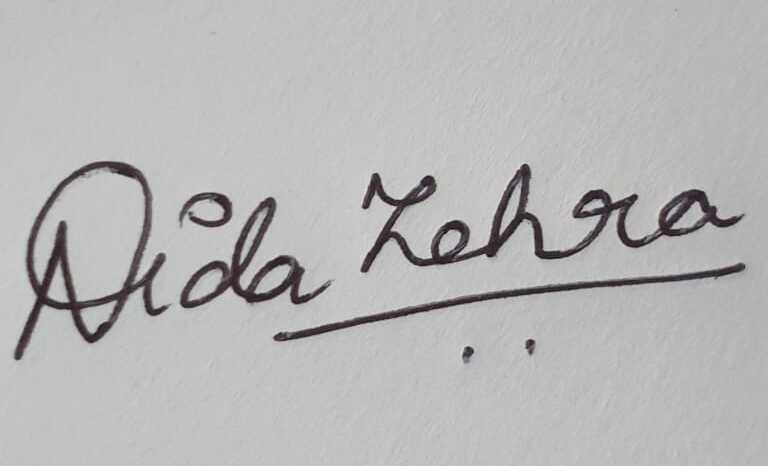 Nida Zehra